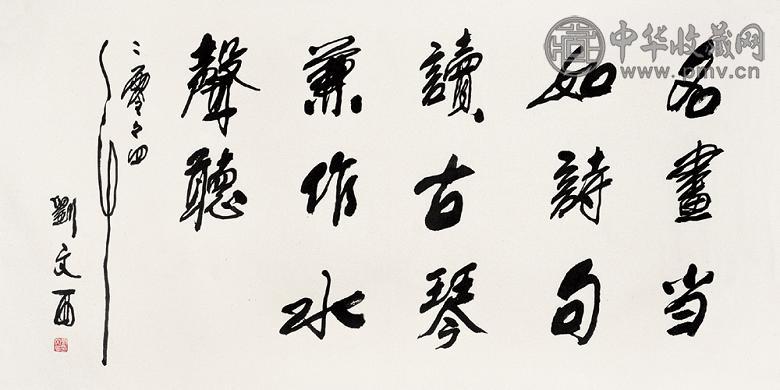 名畫当
如詩句
讀古琴
兼作水
聲聽
二零零四年
劉文西
中华收藏网
www.pmv.cn